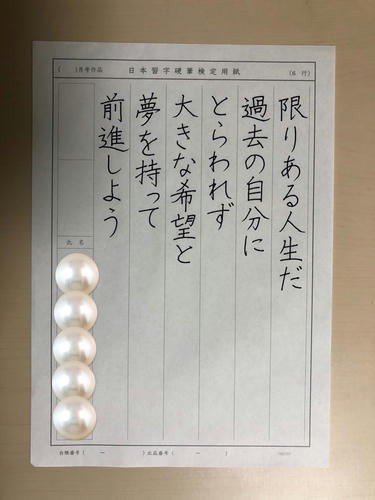 (　　)月号作品　日本習字硬筆検定用紙　(6 行)
限りある人生だ
過去の自分に
とらわれず
大きな希望と
夢を持って
前進しよう
氏名
台帳番号(　　－　　)出品番号(　　－　　)